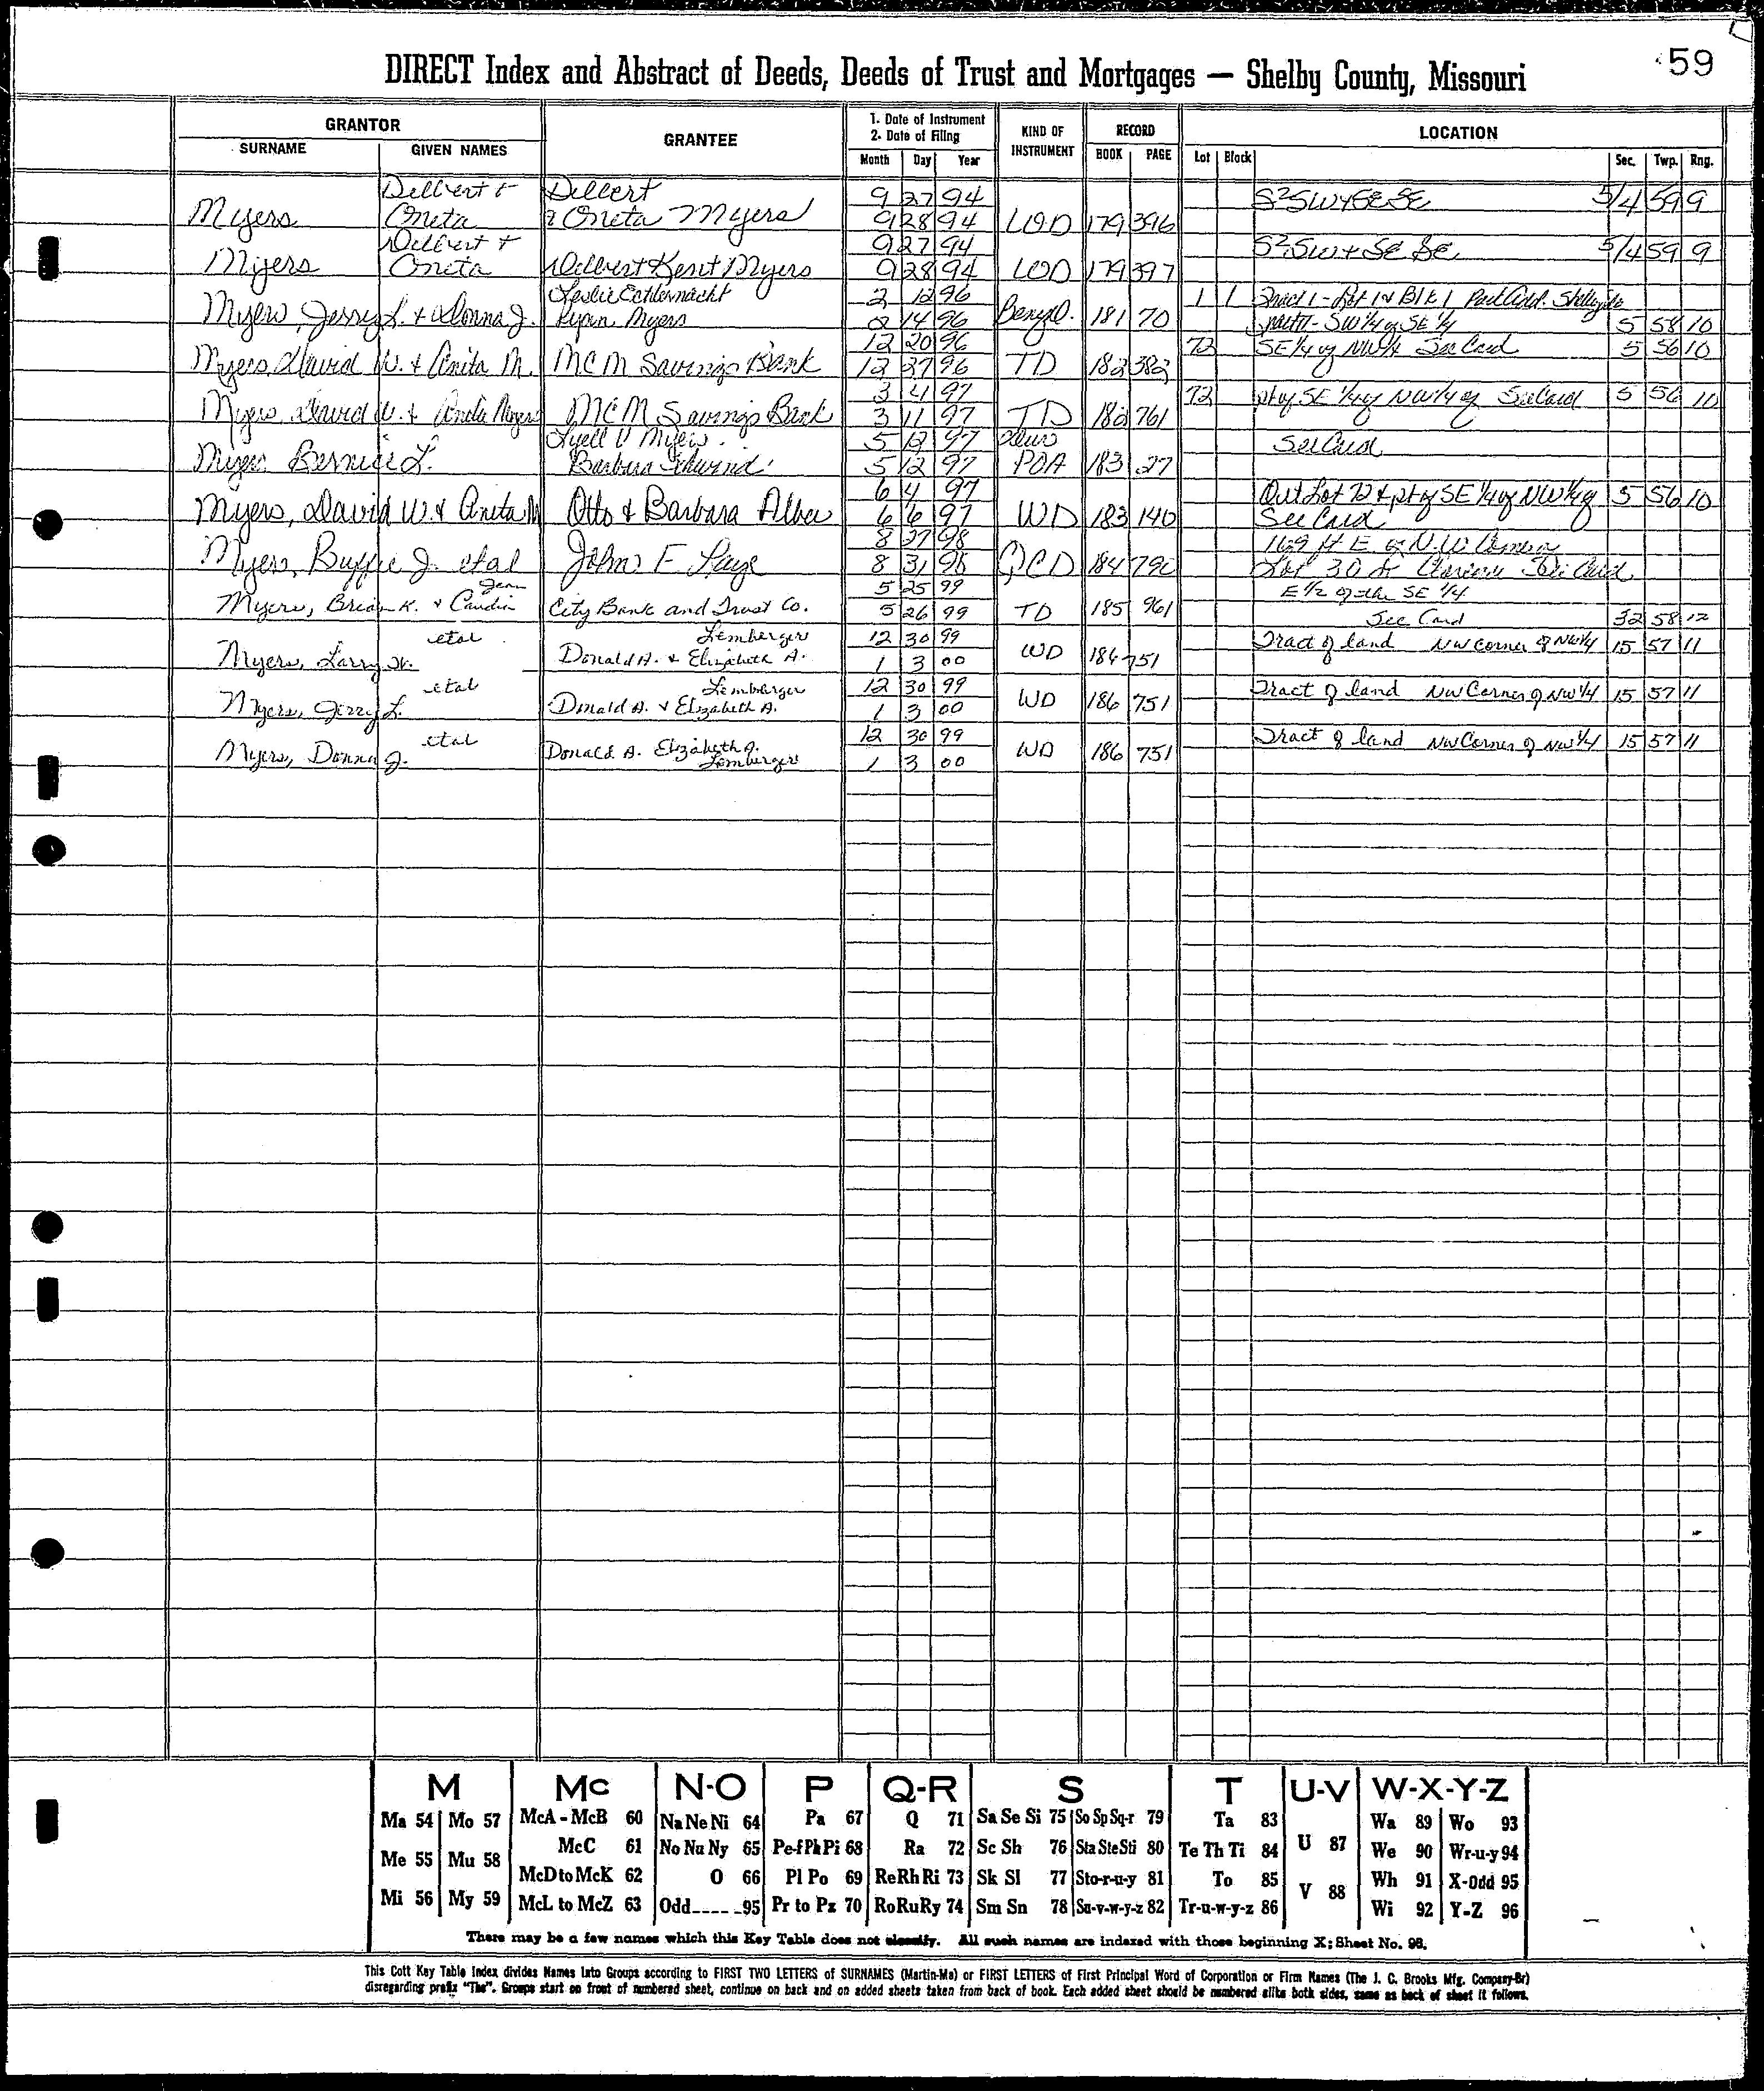 59
DIRECT Index and Abstract of Deeds, Deeds of Trust and Mortgages — Shelby County, Missouri
GRANTOR GRANTEE 1. Date of Instrument 2. Date of Filing KIND OF INSTRUMENT RECORD LOCATION
SURNAME GIVEN NAMES Month Day Year BOOK PAGE Lot Block Sec. Twp. Rng.
Delbert + Delbert 9 27 94 S2SW+SESE 5/4 59 9
Myers Oneta & Oneta Myers 9 28 94 WD 179 396
Delbert + 9 27 94 S2SW+SE SE 5/4 59 9
Myers Oneta Delbert Kent Myers 9 28 94 WD 179 397
Leslie Echternacht 2 12 96 1 1 Tract 1 - Lot 1 & Blk 1 Add.
Myers, Jerry L. & Donna J. Lynn Myers 2 14 96 181 70 SW 1/4 of SE 1/4 5 58 10
12 20 96 72 SE 1/4 of NW 1/4 See Card 5 56 10
Myers, David W. & Anita M. MCM Savings Bank 12 27 96 TD 182 382
3 4 97 72 pt of SE 1/4 of NW 1/4 of See Card 5 56 10
Myers, David W. & Anita Myers MCM Savings Bank 3 11 97 TD 182 761
Lyell V Myers 5 12 97 See Card
Myers Bernice L. Barbara Schwind 5 12 97 POA 183 27
6 4 97 Out Lot 72 & pt of SE 1/4 of NW 1/4 of 5 56 10
Myers, David W. & Anita M Otto & Barbara Alber 6 6 97 WD 183 140 See Card
8 27 98 169 ft E of N.W. Corner
Myers, Buffie J. etal John F Faye 8 31 98 QCD 184 790 Lot 30 Clarence See Card
Jean 5 25 99 E 1/2 of the SE 1/4
Myers, Brian K. & Candia City Bank and Trust Co. 5 26 99 TD 185 961 See Card 32 58 12
etal Lemberger 12 30 99 Tract of land NW corner of NW 1/4 15 57 11
Myers, Larry W. Donald A. & Elizabeth A. 1 3 00 WD 186 751
etal Lemberger 12 30 99 Tract of land NW Corner of NW 1/4 15 57 11
Myers, Jerry L. Donald A. & Elizabeth A. 1 3 00 WD 186 751
etal 12 30 99 Tract of land NW Corner of NW 1/4 15 57 11
Myers, Donna J. Donald A. Elizabeth A. Lemberger 1 3 00 WD 186 751
M Mc N-O P Q-R S T U-V W-X-Y-Z
Ma 54 Mo 57 McA - McB 60 Na Ne Ni 64 Pa 67 Q 71 Sa Se Si 75 So Sp Sq-r 79 Ta 83 Wa 89 Wo 93
McC 61 No Nu Ny 65 Pe-f Ph Pi 68 Ra 72 Sc Sh 76 Sta Ste Sti 80 Te Th Ti 84 U 87 We 90 Wr-u-y 94
Me 55 Mu 58 McD to McK 62 O 66 Pl Po 69 Re Rh Ri 73 Sk Sl 77 Sto-r-u-y 81 To 85 V 88 Wh 91 X-Odd 95
Mi 56 My 59 McL to McZ 63 Odd-----95 Pr to Pz 70 Ro Ru Ry 74 Sm Sn 78 Su-v-w-y-z 82 Tr-u-w-y-z 86 Wi 92 Y-Z 96
There may be a few names which this Key Table does not classify. All such names are indexed with those beginning X; Sheet No. 95.
This Cott Key Table Index divides Names into Groups according to FIRST TWO LETTERS of SURNAMES (Martin-Ma) or FIRST LETTERS of First Principal Word of Corporation or Firm Names (The J. C. Brooks Mfg. Company-Br)
disregarding prefix "The". Groups start on front of numbered sheet, continue on back and on added sheets taken from back of book. Each added sheet should be numbered alike both sides, same as back of sheet it follows.